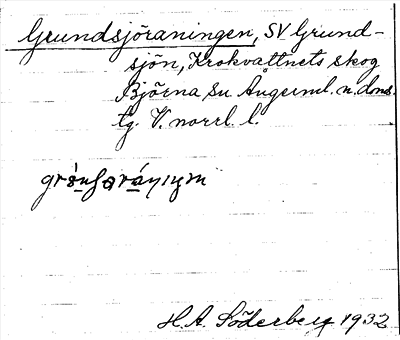 Grundsjöraningen, SV Grund-
sjön, Krokvattnets skog
Björna sn Ångerml. n. dms.
tg. V. norrl. l.
H.A. Söderberg 1932